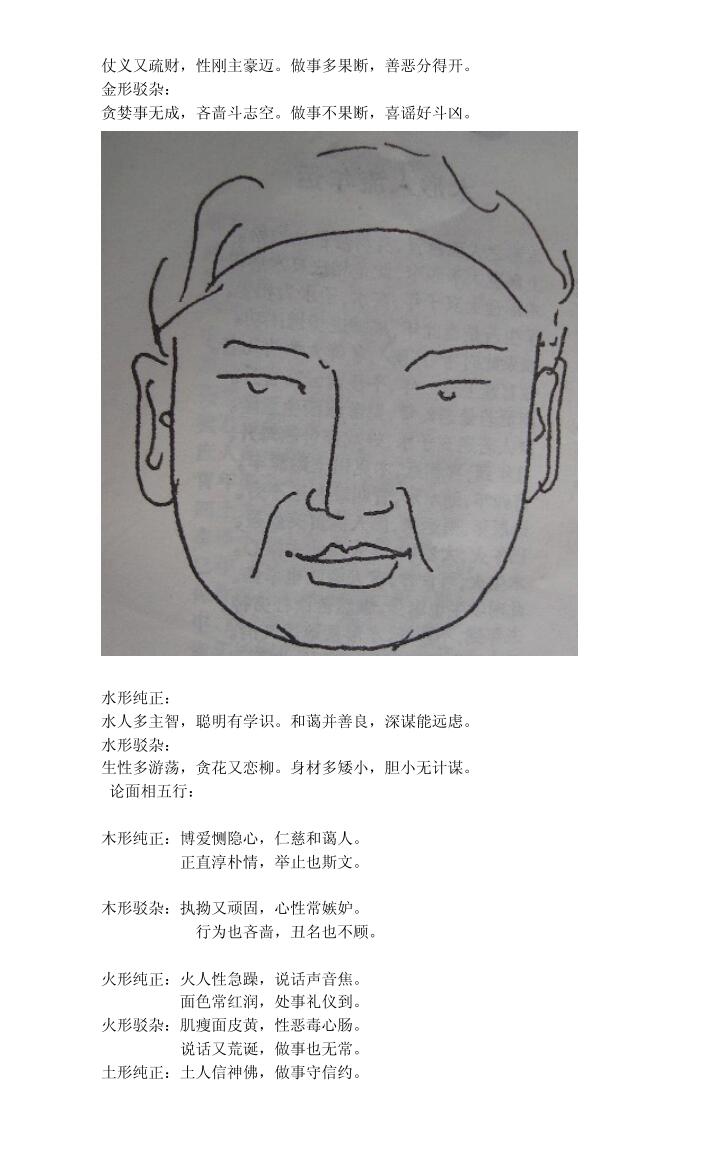 仗义又疏财，性刚主豪迈。做事多果断，善恶分得开。
金形驳杂：
贪婪事无成，吝啬斗志空。做事不果断，喜谣好斗凶。
水形纯正：
水人多主智，聪明有学识。和蔼并善良，深谋能远虑。
水形驳杂：
生性多游荡，贪花又恋柳。身材多矮小，胆小无计谋。
论面相五行：
木形纯正：博爱恻隐心，仁慈和蔼人。
正直淳朴情，举止也斯文。
木形驳杂：执拗又顽固，心性常嫉妒。
行为也吝啬，丑名也不顾。
火形纯正：火人性急躁，说话声音焦。
面色常红润，处事礼仪到。
火形驳杂：肌瘦面皮黄，性恶毒心肠。
说话又荒诞，做事也无常。
土形纯正：土人信神佛，做事守信约。